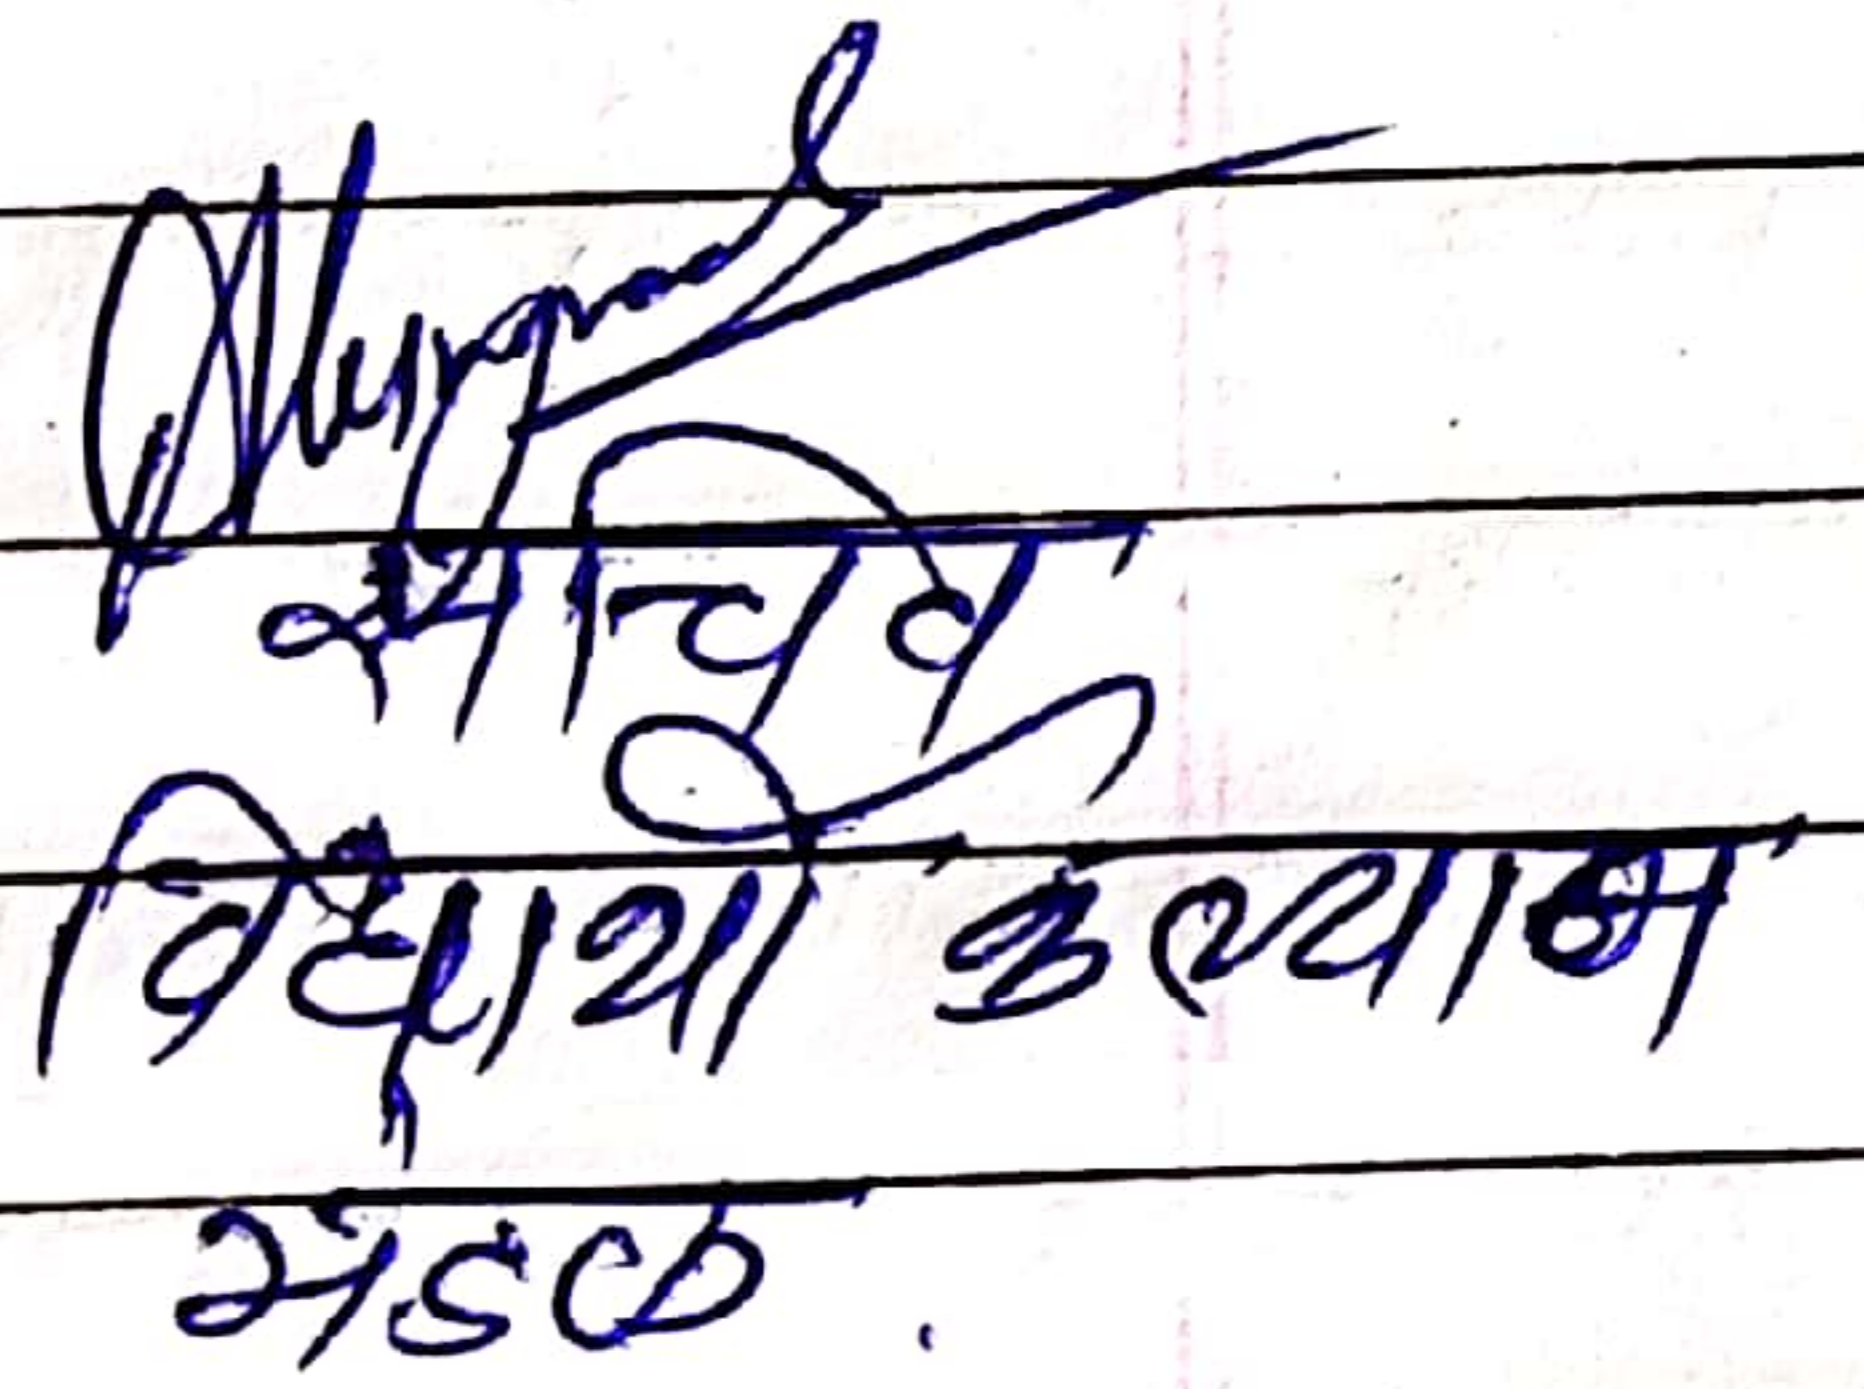 सचिव
विद्यार्थी कल्याण
मंडळ.